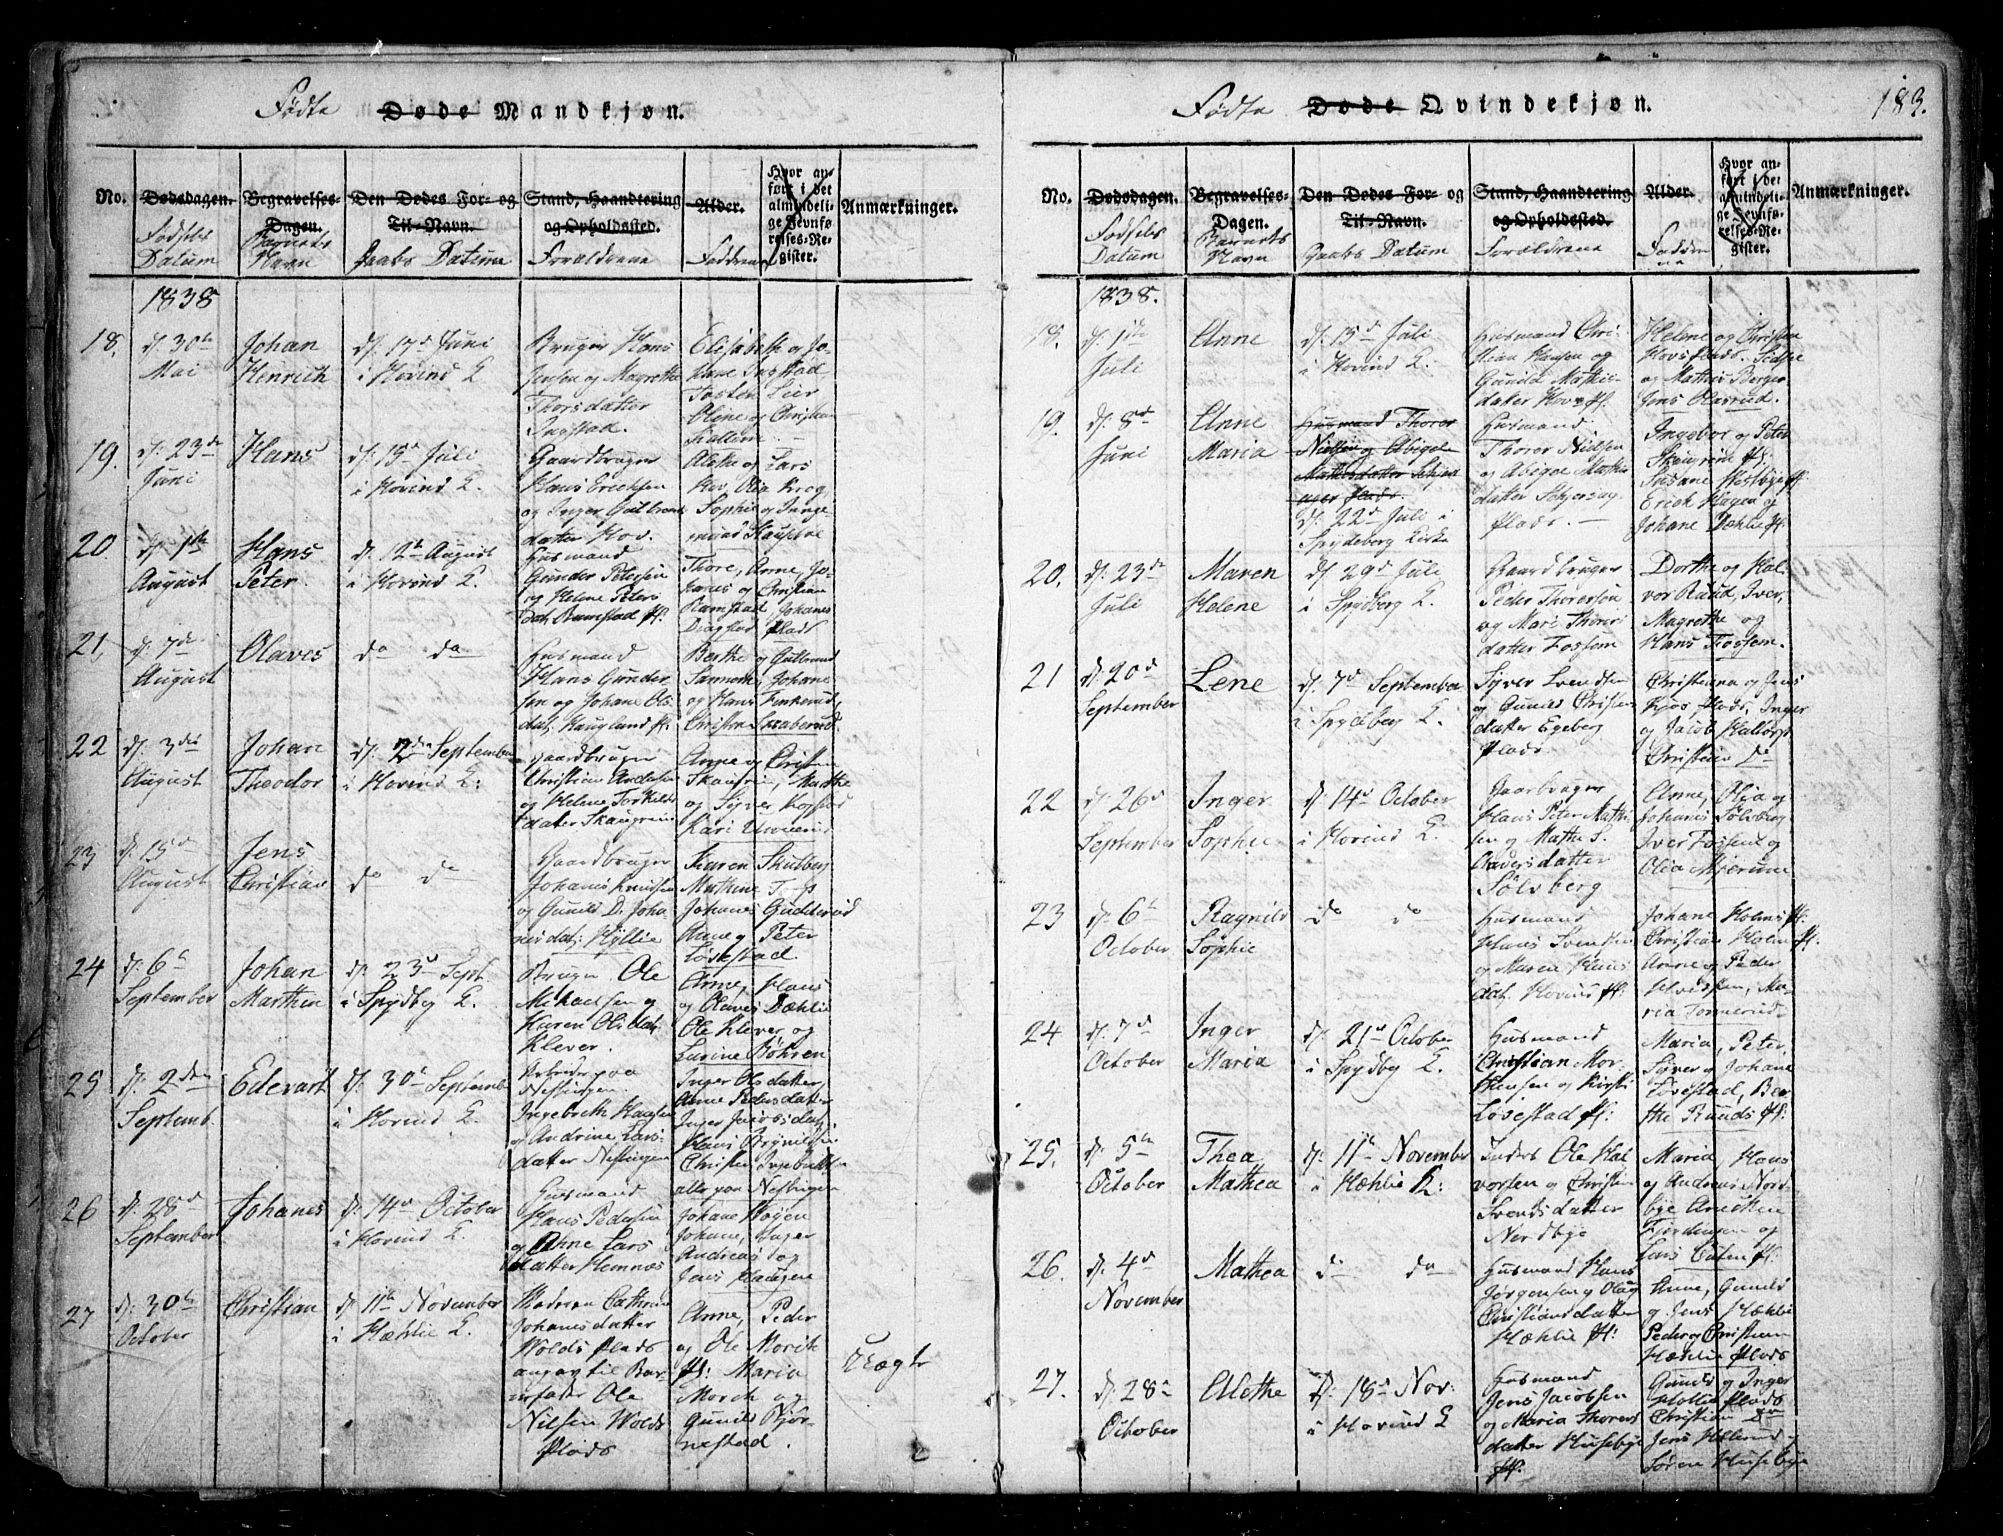 Fødte Døde Mandkjøn.
No.
Dødsdagen.
Fødsels
Datum
Begravelses-
Dagen.
Barnets
Navn
Den Dødes For- og
Til-Navn.
Daabs Datum
Stand, Haandtering
og Opholdssted.
Forældrene
Alder.
Faddrene
Hvor an-
ført i det
almindeli-
ge Jevnfø-
relses-Re-
gister.
Anmærkninger.
1838
18.
d: 30te
Mai
Johan
Henrich
d: 17d Juni
i Hovind K
Bruger Hans
Jensen og Magrethe
Thorsdatter
Elisabeth og Jo-
Tosten Lier
Oline og Christian
19.
d: 23de
Juni
Hans
d: 15d Juli
i Hovind K.
Gaardbruger
Hans Erichsen
og Inger Gulbrand
datter Hov.
og Lars
Hov, Olia Krog
Sophie og Inge-
20
d: 1ste
August
Hans
Peter.
d: 12te August
i Hovind K.
Husmand
Gunder Petersen
og Helene Peters
dat. Ramstad Pl.
Thore, Anne, Jo-
hanes og Christian
Ramstad, Johanes
Plads
21
d: 7de
August
Olaves
do do
Husmand
Hans Gunder
sen og Johane Ols
dat. Haugland Pl.
Berthe og Gulbrand
Johane
og Hans
22
d: 3die
August
Johan
Theodor
d: 2den September
i Hovind K:
Gaardbruger
Christian Anders
og Helene Torkilds
datter Skaugrim
Anne og Christen
Skaugrim, Marthe
og Syver
Kari
23
d: 15d
August
Jens
Christian
do do
Gaardbruger
Johanes Knudsen
og Gunild D. Joha
nesdat. Hyllie
Karen
Mathene
Johanes Gudderud
Anne og Peter
Løvestad.
24
d: 6te
September
Johan
Marthen
d: 23d Sept
i Spydbg K.
Bruger Ole
Michaelsen og
Karen Olsdat.
Klever.
Anne, Hans
og Olaves Dæhlie
Ole Klever, og
Larine Bøhren
25
d: 2den
Septemb.
Edevart
d: 30te Septemb
i Hovind K.
Ingebreth Hansen
og Andrine Lars-
datter
Inger Olsdatter
Anne Pedersdatter
Inger Jacobsdat.
Hans
Christen Ingebretsen
26
d: 28d
September
Johanes
d: 14d October
i Hovind K.
Husmand
Hans Pedersen
og Anne Lars
datter Hemnæs
Johane
Johane, Inger
Andreas og
Jens Haugen
27
d: 30te
October
Christian
d: 11te November
i Hæhlie K.
Moderen Cathrine
Johanesdatter
Wolds Plads
angav til Bar-
nefader Ole
Nilsen Wolds
Plads
Anne, Peder
og Ole Morch
Pl: Maria
Morch og
Gunild Bjør-
nestad.
Uægte
Fødte Døde Qvindekjøn. 183.
No.
Dødsdagen.
Fødsels
Datum
Begravelses-
Dagen.
Barnets
Navn
Den Dødes For- og
Til-Navn.
Daabs Datum
Stand, Haandtering
og Opholdssted.
Forældrene
Alder.
Faddre-
ne
Hvor an-
ført i det
almindeli-
ge Jevnfø-
relses-Re-
gister.
Anmærkninger.
1838.
18.
d: 1ste
Juli
Anne
d: 15d Juli
i Hovind K.
Husmand Chri-
stian Hansen og
Gunild Mathis-
datter Hovs Pl.
Helene og Christian
Hovs Plads.
og Mathis Berger
Jens Olasrud.
19.
d: 8d
Juni
Anne
Maria
Husmand Thorer
Nielsen og Abigel
Mathisdatter
Plads.
d: 22d Juli i
Spydeberg Kirke
Husmand
Thorer Nielsen
og Abigel Mathis
datter
Plads. —
Ingebor og Peter
Skaugrim Pl.
Erich Hagen og
Johane Dæhlie Pl.
20.
d: 23de
Juli
Maren
Helene
d: 29d Juli
i Spydberg K.
Gaardbruger
Peder Thorersen
og Mari Thorer
datter Fossem
Dorthe og Hal-
vor Ruud, Iver,
Magrethe og
Hans Fossem.
21
d: 20d
September
Lene
d: 7d September
i Spydeberg K.
Syver Svendsen
og Gunild Christen
datter Egeberg
Plads
Christiana og Jens
Plads, Inger
og Jacob
Christian Do
22
d: 26d
September
Inger
Sophie
d: 14d October
i Hovind K.
Gaardbruger
Hans Peter Math
sen og Mathe S.
Olaversdatter
Sølvberg
Anne, Olia og
Johanis Sølvberg
Iver Fossem og
Olia Mjerum
23
d: 6te
October
Ragnild
Sophie
do do
Husmand
Hans Svendsen
og Maren Hans
dat. Hovind Pl.
Johane Holms Pl.
Christian Holm Pl.
Anne og Peder
Ma-
ria Tonnerud
24
d: 7d
October
Inger
Maria
d: 21d October
i Spydbg K.
Husmand
Christian Mor-
thensen og Kirsti
Løvestad Pl:
Maria, Peter,
Syver og Johane
Løvestad, Ber-
the Ruuds Pl:
25.
d: 5te
October
Thea
Mathea
d: 11te November
i Hæhlie K:
Inders Ole Hal-
vorsen og Christin
Svendsdatter
Nordbye
Maria, Hans
og Andreas Nord-
bye
og
Pl.
26.
d: 4d
November
Mathea
do do
Husmand Hans
Jørgensen og Olog
Christiansdatter
Hæhlie Pl:
Anne, Gunild
og Jens Hæhlie
Peder og Christian
Hæhlie Plads
27.
d: 28d
October
Alethe
d: 18d Nov:
i Hovind K
Husmand
Jens Jacobsen
og Maria Thorers
datter Husebye
Pl.
Gunild og Inger
Plads
Christian Do
Søren Husebye